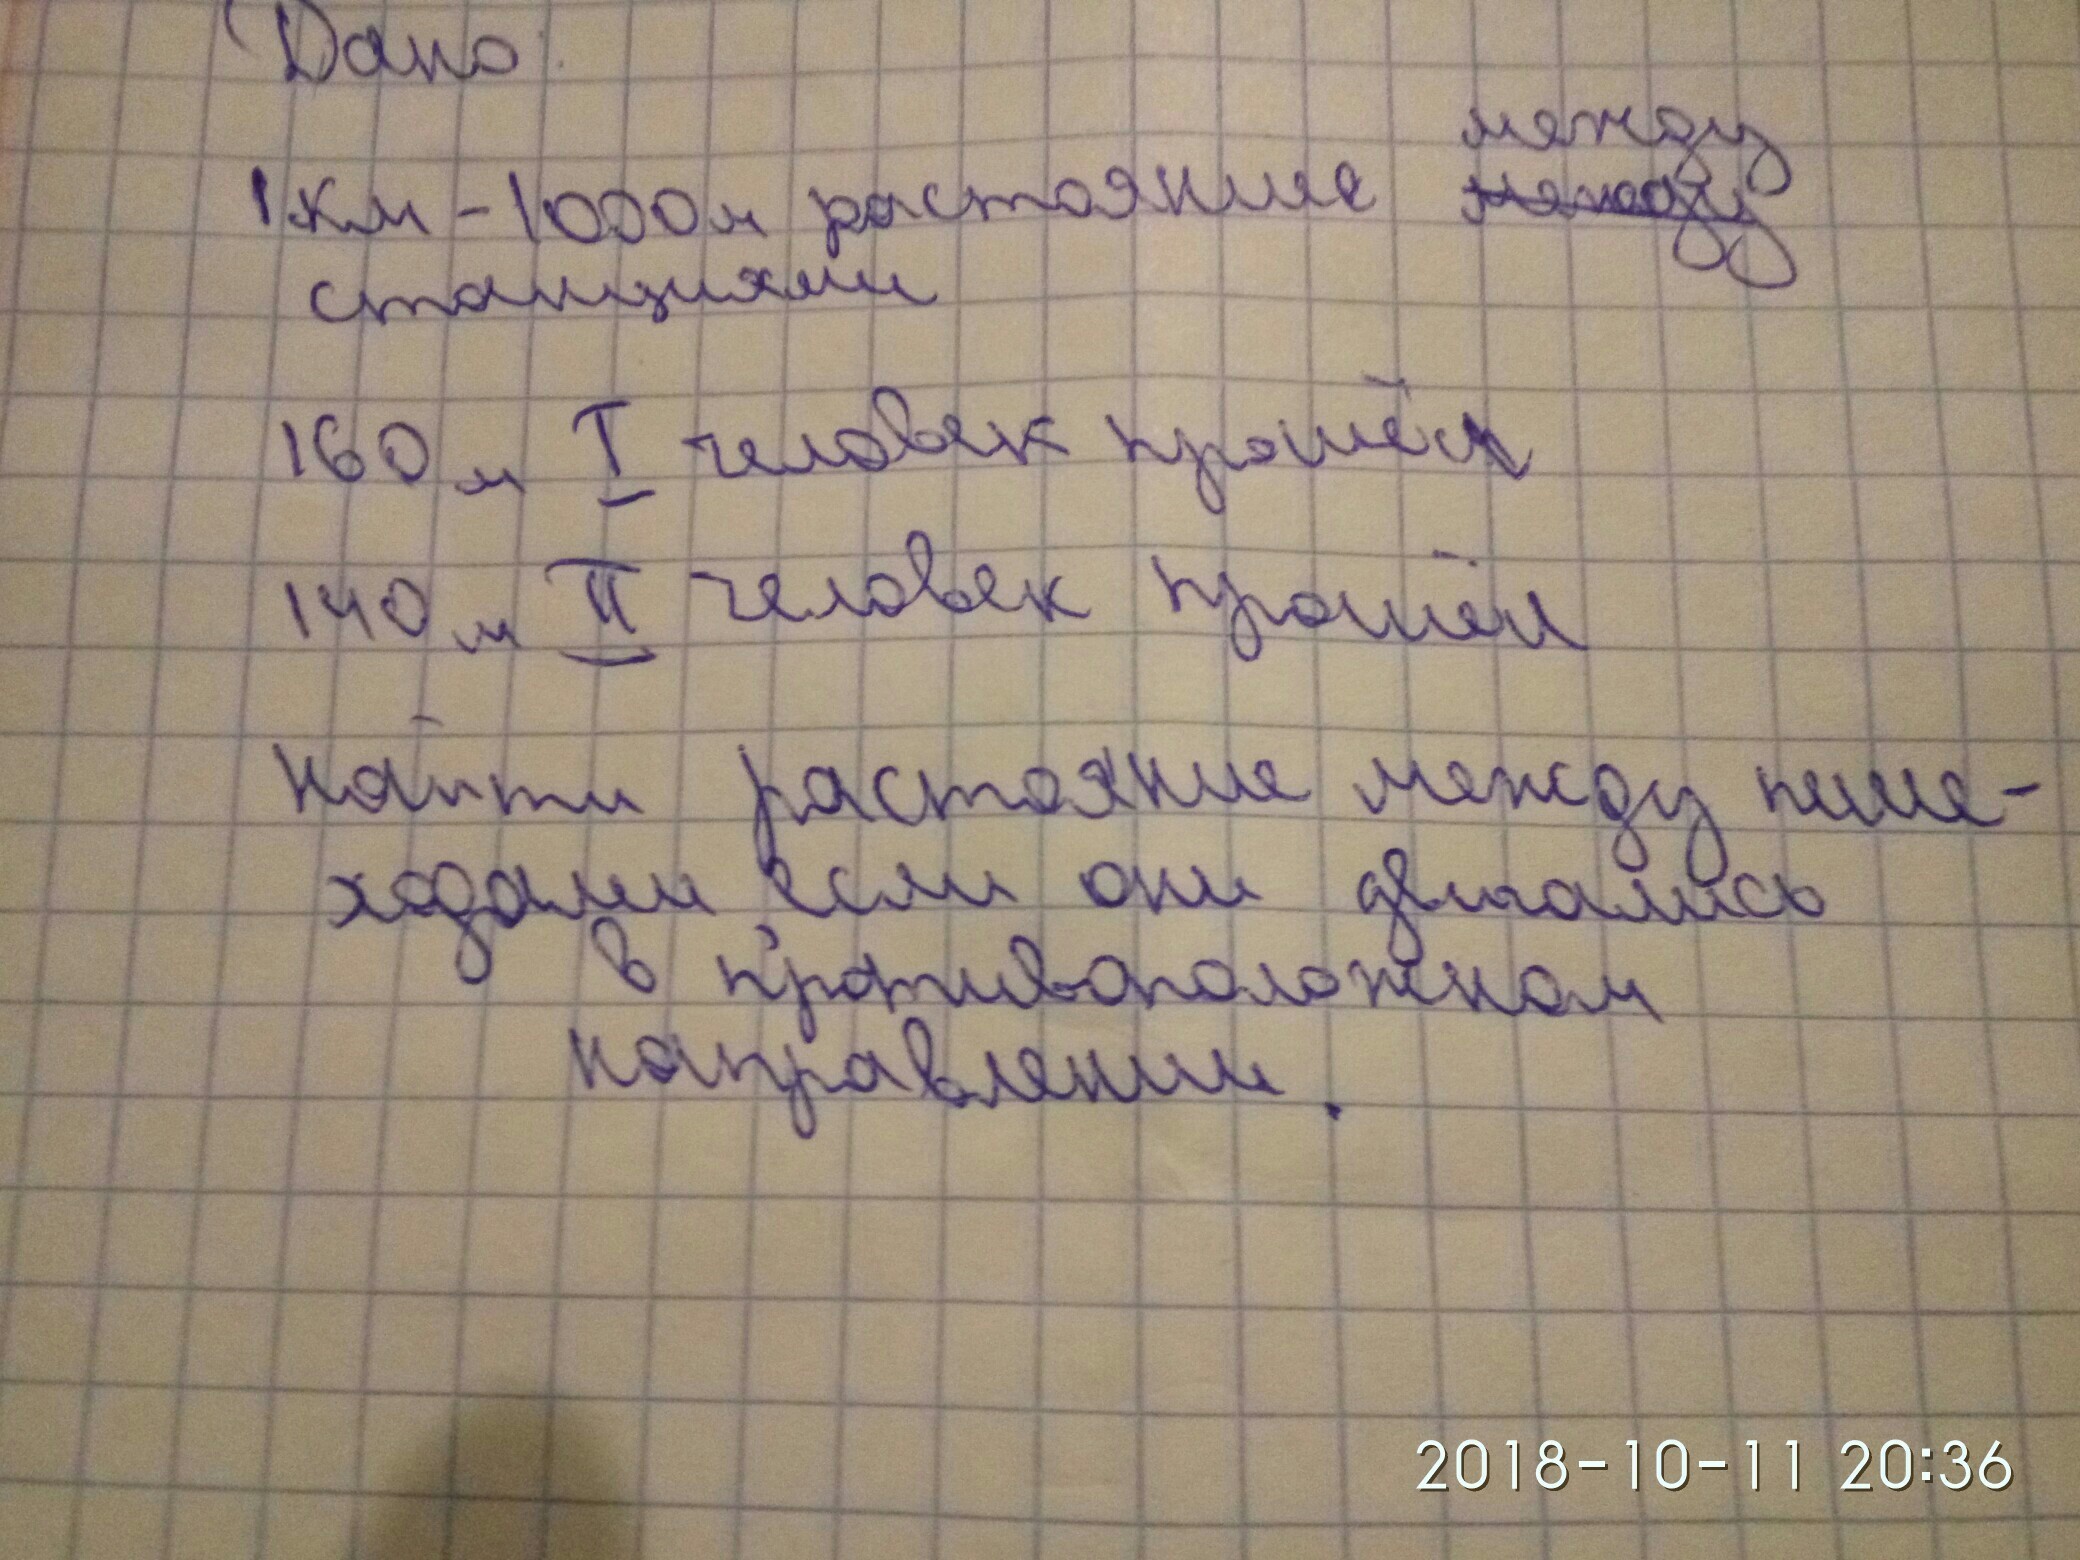 Дано:
между
1 км - 1000 м растояние между
станциями
160 м I человек прошёл
140 м II человек прошёл
Найти растояние между пеше-
ходами если они двигались
в противоположном
направлении.
2018-10-11 20:36